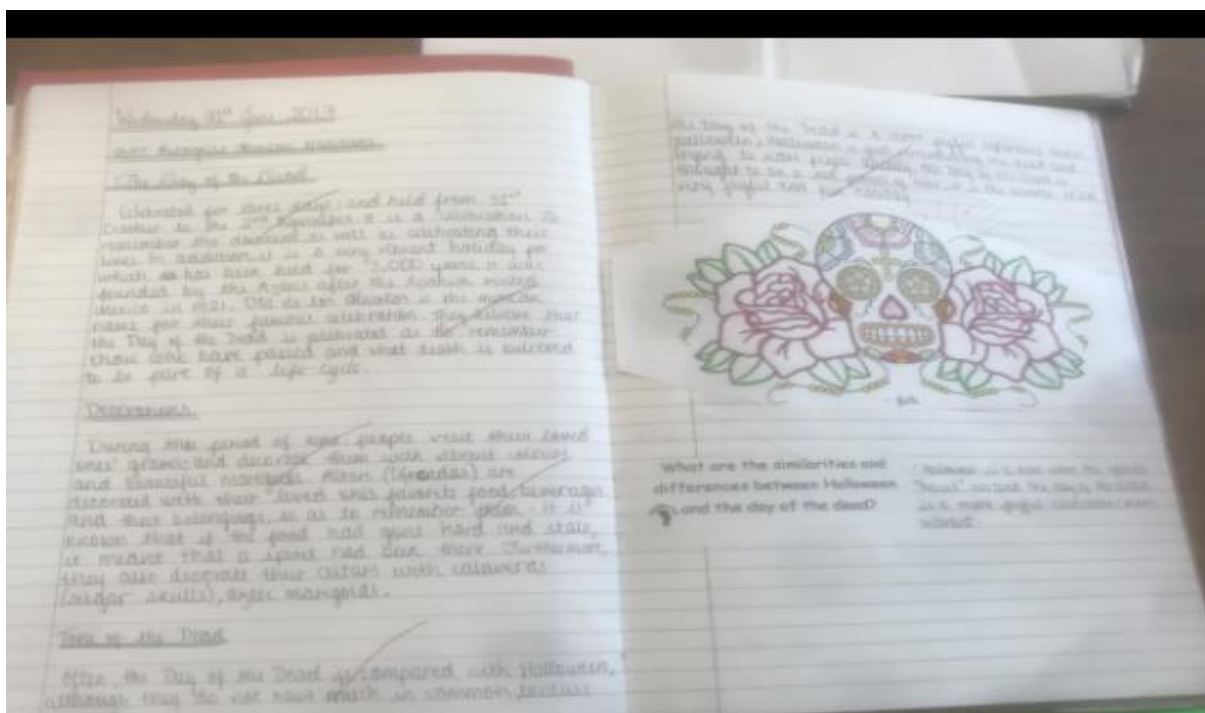 Wednesday 21st June 2017
The Day of the Dead
Celebrated for three days; and held from 31st
October to the 2nd November it is a celebration to
remember the deceased as well as celebrating their
lives. In addition, it is a very vibrant holiday for
which has been held for 3,000 years. It was
founded by the Aztecs after the Spanish
Mexico in 1521. Día de los Muertos is the mexican
name for their famous celebration. They believe that
the Day of the Dead is celebrated as to remember
those who have passed and that death is
to be part of a life cycle.
Decorations
During this period of time people visit their loved
ones' graves and decorate them with vibrant colours
and beautiful marigolds. Altars (Ofrendas) are
decorated with their loved ones favorite food, beverage
and their belongings, so as to remember them. It is
known that if the food had gone hard and stale,
it meant that a spirit had been there. Furthermore,
they also decorate their altars with calaveras
(sugar skulls), aztec marigolds.
of the Dead
Often, the Day of the Dead is compared with Halloween,
although they do not have much in common because
the Day of the Dead is a more joyful
Halloween. Halloween is
trying to
thought to be a
very joyful and fun holiday
What are the similarities and
differences between Halloween
and the day of the dead?
Halloween is a time when the spirits
"haunt" us and the day of the dead
is a more joyful celebration